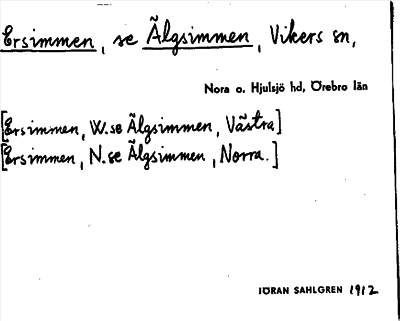 Ersimmen, se Älgsimmen, Vikers sn,
Nora o. Hjulsjö hd, Örebro län
[Ersimmen, W. se Älgsimmen, Västra]
[Ersimmen, N. se Älgsimmen, Norra.]
JÖRAN SAHLGREN 1912